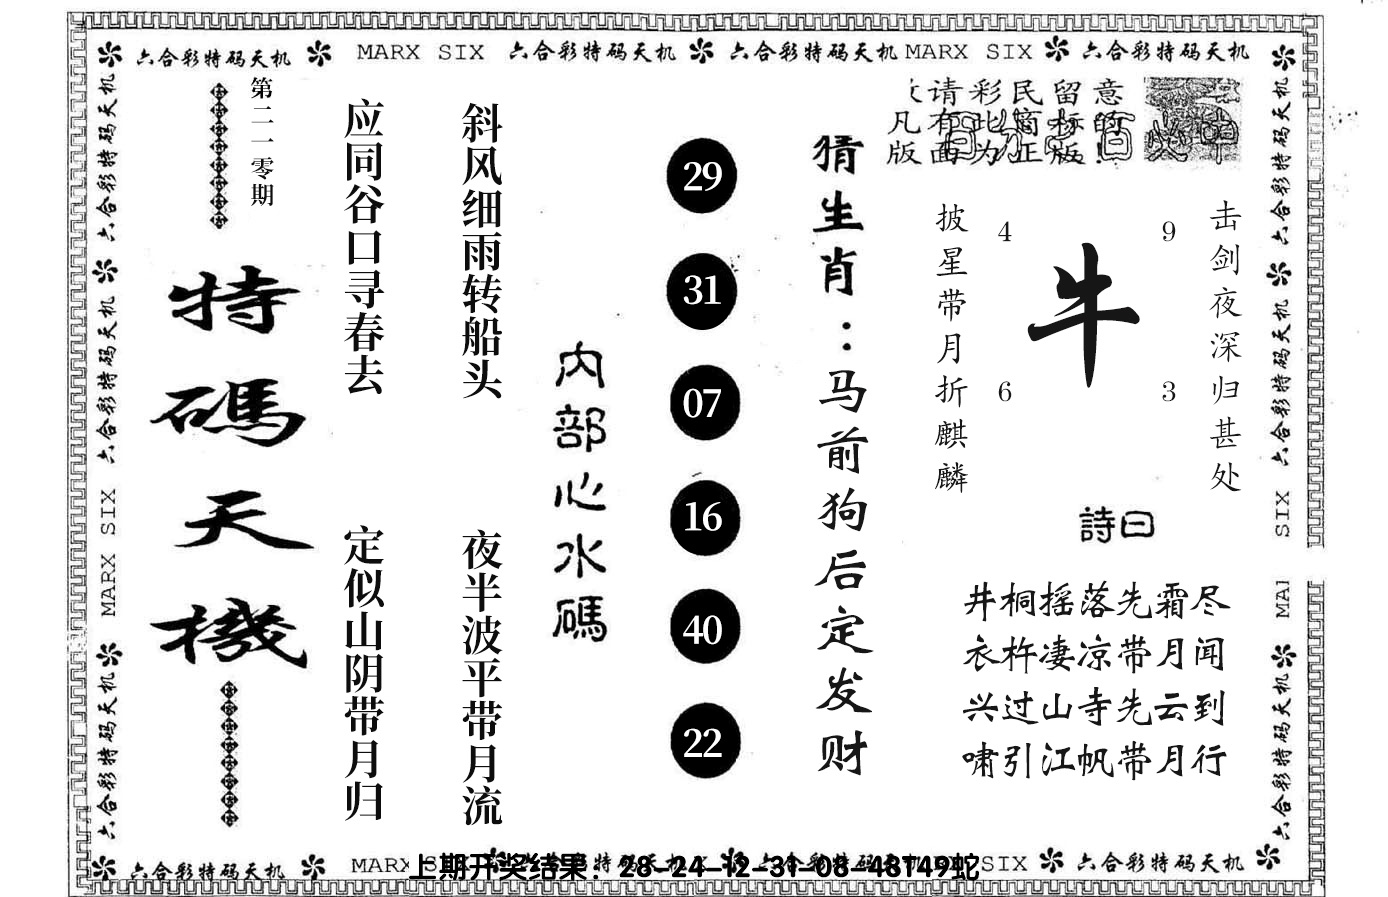 六合彩特码天机 MARX SIX 六合彩特码天机 六合彩特码天机 MARX SIX 六合彩特码天机
六合彩特码天机 六合彩特码天机 MARX SIX 六合彩特码天机
第二一零期
特碼天機
应同谷口寻春去
定似山阴带月归
斜风细雨转船头
夜半波平带月流
内部心水碼
29
31
07
16
40
22
猜生肖：马前狗后定发财
请彩民留意
凡有此商标的
版面为正版！
披星带月折麒麟
4
9
牛
6
3
击剑夜深归甚处
詩曰
井桐摇落先霜尽
衣杵凄凉带月闻
兴过山寺先云到
啸引江帆带月行
六合彩特码天机 六合彩特码天机 SIX MAI 六合彩特码天机
六合彩特码天机 MARX SIX 六合彩特码天机
上期开奖结果：28-24-12-31-08-48T49蛇